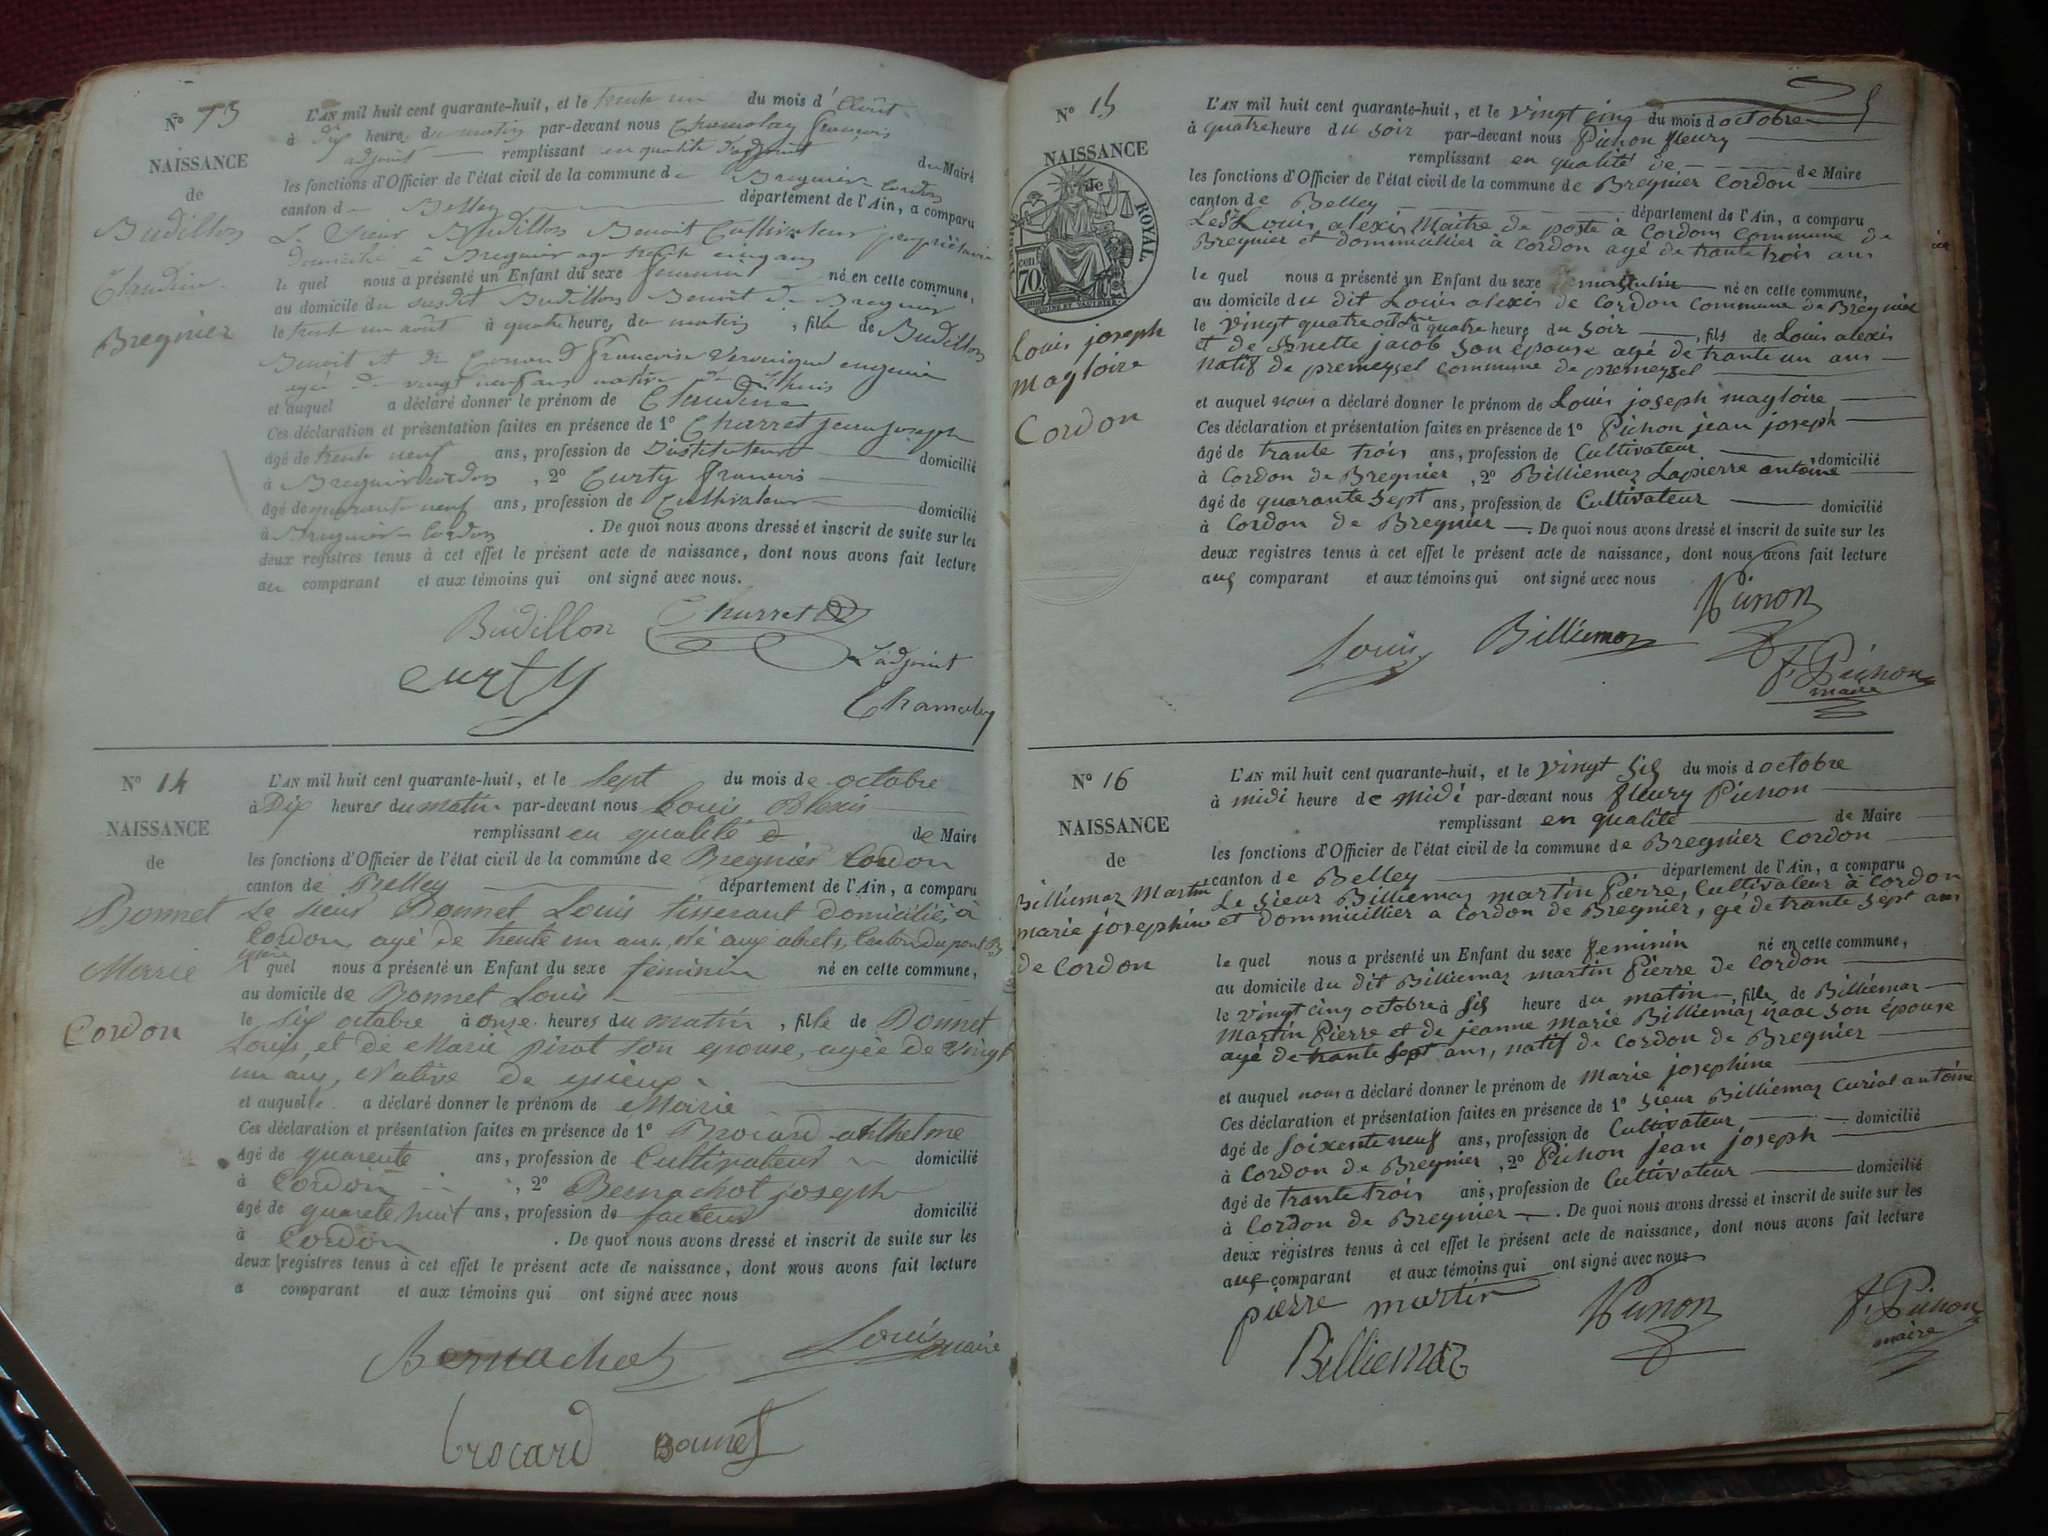 Nº 13
NAISSANCE
de
Budillon
Claudine
Bregnier
L'AN mil huit cent quarante-huit, et le trente un du mois d'Août
à dix heure du matin par-devant nous Chamolay françois
adjoint remplissant en qualité d'adjoint du Maire
les fonctions d'Officier de l'état civil de la commune de Bregnier Cordon
canton de Belley département de l'Ain, a comparu
Le Sieur Budillon Benoit Cultivateur propriétaire
domicilié à Bregnier age trente cinq ans
le quel nous a présenté un Enfant du sexe feminin né en cette commune,
au domicile du susdit Budillon Benoit de Bregnier
le trent un août à quatre heure, du matin, fille de Budillon
Benoit et de françoise Veronique eugenie
agée de vingt neuf ans native de
et auquel a déclaré donner le prénom de Claudine
Ces déclaration et présentation faites en présence de 1º Charret jean joseph
âgé de trente neuf ans, profession de Instituteur domicilié
à Bregnier Cordon, 2º Curty francois
âgé de quarante neuf ans, profession de Cultivateur domicilié
à Bregnier Cordon. De quoi nous avons dressé et inscrit de suite sur les
deux registres tenus à cet effet le présent acte de naissance, dont nous avons fait lecture
au comparant et aux témoins qui ont signé avec nous.
Budillon Charret
curty L'adjoint
Chamolay
Nº 14
NAISSANCE
de
Bonnet
Marie
Cordon
L'AN mil huit cent quarante-huit, et le Sept du mois de octobre
à Dix heures du matin par-devant nous Louis Alexis
remplissant en qualité d de Maire
les fonctions d'Officier de l'état civil de la commune de Bregnier Cordon
canton de Belley département de l'Ain, a comparu
Le sieur Bonnet Louis tisserant domicilié à
Cordon, agé de trente un ans, né aux abrets, Canton du pont B
le quel nous a présenté un Enfant du sexe féminin né en cette commune,
au domicile de Bonnet Louis
le six octobre à onze heures du matin, fille de Bonnet
Louis, et de Marie pirot son epouse, agée de vingt
un ans, Native de
et auquelle a déclaré donner le prénom de Marie
Ces déclaration et présentation faites en présence de 1º Brocard Anthelme
âgé de quarente ans, profession de Cultivateur domicilié
à Cordon, 2º Bernachot joseph
âgé de quarete huit ans, profession de facteur domicilié
à Cordon. De quoi nous avons dressé et inscrit de suite sur les
deux registres tenus à cet effet le présent acte de naissance, dont nous avons fait lecture
a comparant et aux témoins qui ont signé avec nous
Bernachot Louis maire
brocard Bonnet
Nº 15
NAISSANCE
ROYAL
70
Louis joseph
magloire
Cordon
L'AN mil huit cent quarante-huit, et le vingt cinq du mois d octobre
à quatre heure du soir par-devant nous Pichon fleury
remplissant en qualité de de Maire
les fonctions d'Officier de l'état civil de la commune de Bregnier Cordon
canton de Belley département de l'Ain, a comparu
Le Sr Louis alexis Maitre de poste à Cordon Commune de
Bregnier et dommicilier à cordon agé de trante trois ans
le quel nous a présenté un Enfant du sexe masculin né en cette commune,
au domicile du dit Louis alexis de Cordon commune de Bregnier
le vingt quatre octobre à quatre heure du soir, fils de Louis alexis
et de jacob son épouse agé de trante un ans
natif de premeysel commune de premeysel
et auquel nous a déclaré donner le prénom de Louis joseph magloire
Ces déclaration et présentation faites en présence de 1º Pichon jean joseph
âgé de trante trois ans, profession de Cultivateur domicilié
à Cordon de Bregnier, 2º Billiemaz Lapierre antoine
âgé de quarante sept ans, profession de Cultivateur domicilié
à Cordon de Bregnier. De quoi nous avons dressé et inscrit de suite sur les
deux registres tenus à cet effet le présent acte de naissance, dont nous avons fait lecture
aux comparant et aux témoins qui ont signé avec nous
Pichon
Louis Billiemaz
F. Pichon
maire
Nº 16
NAISSANCE
de
Billiemaz Martin
marie josephine
de Cordon
L'AN mil huit cent quarante-huit, et le vingt six du mois d octobre
à midi heure de midi par-devant nous fleury Pichon
remplissant en qualité de Maire
les fonctions d'Officier de l'état civil de la commune de Bregnier Cordon
canton de Belley département de l'Ain, a comparu
Le Sieur Billiemaz martin Pierre, Cultivateur à Cordon
et dommicillier a Cordon de Bregnier, gé de trante sept ans
le quel nous a présenté un Enfant du sexe feminin né en cette commune,
au domicile du dit Billiemaz martin Pierre de Cordon
le vingt cinq octobre à six heure du matin, fille de Billiemaz
martin Pierre et de jeanne marie Billiemaz izaac son épouse
agé de trante sept ans, natif de Cordon de Bregnier
et auquel nous a déclaré donner le prénom de marie josephine
Ces déclaration et présentation faites en présence de 1º sieur Billiemaz Curial antoine
âgé de soixente neuf ans, profession de Cultivateur domicilié
à Cordon de Bregnier, 2º Pichon jean joseph
âgé de trante trois ans, profession de Cultivateur domicilié
à Cordon de Bregnier. De quoi nous avons dressé et inscrit de suite sur les
deux registres tenus à cet effet le présent acte de naissance, dont nous avons fait lecture
aux comparant et aux témoins qui ont signé avec nous
pierre martin Pichon F. Pichon
maire
Billiemaz